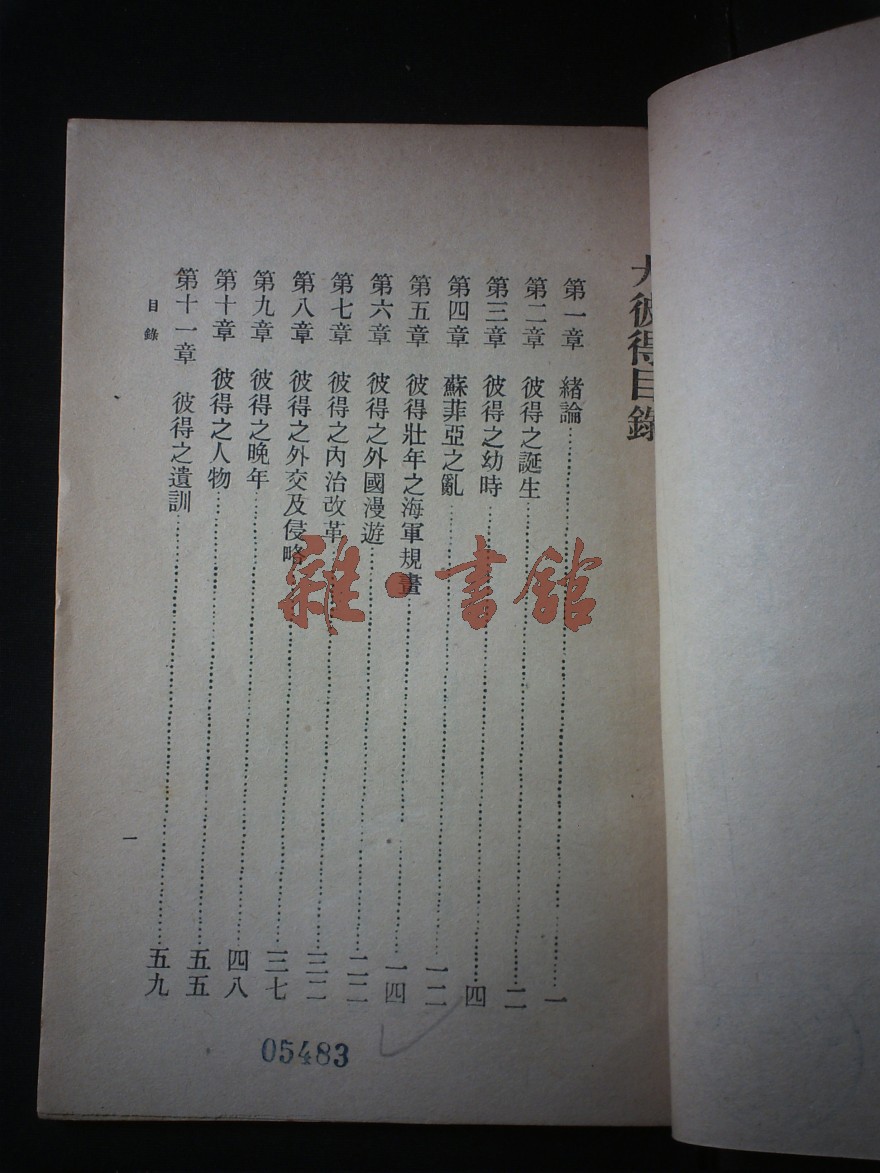 大彼得目錄
第一章 緒論……一
第二章 彼得之誕生……二
第三章 彼得之幼時……四
第四章 蘇菲亞之亂……一二
第五章 彼得壯年之海軍規畫……一四
第六章 彼得之外國漫遊……二二
第七章 彼得之內治改革……三二
第八章 彼得之外交及侵略……三七
第九章 彼得之晚年……四八
第十章 彼得之人物……五五
第十一章 彼得之遺訓……五九
目錄
一
05483
雜·書館